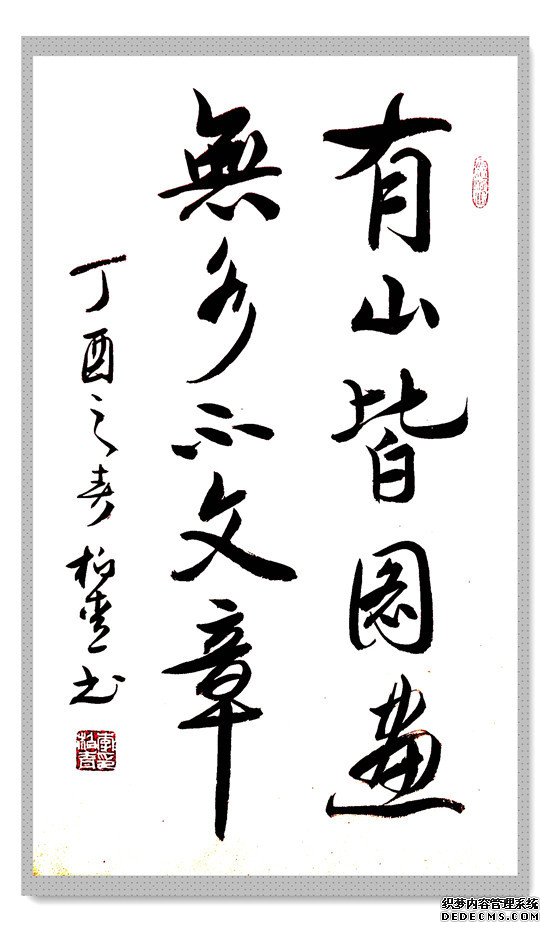 有山皆圖畫
無水不文章
丁酉之春 柏 书
织梦内容管理系统
DEDECMS.COM